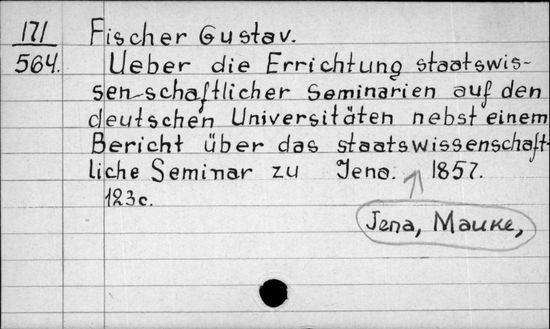 171 Fischer Gustav.
564. Ueber die Errichtung staatswis-
sen-schaftlicher Seminarien auf den
deutschen Universitäten nebst einem
Bericht über das staatswissenschaft-
liche Seminar zu Jena. 1857.
123c.
Jena, Mauke,